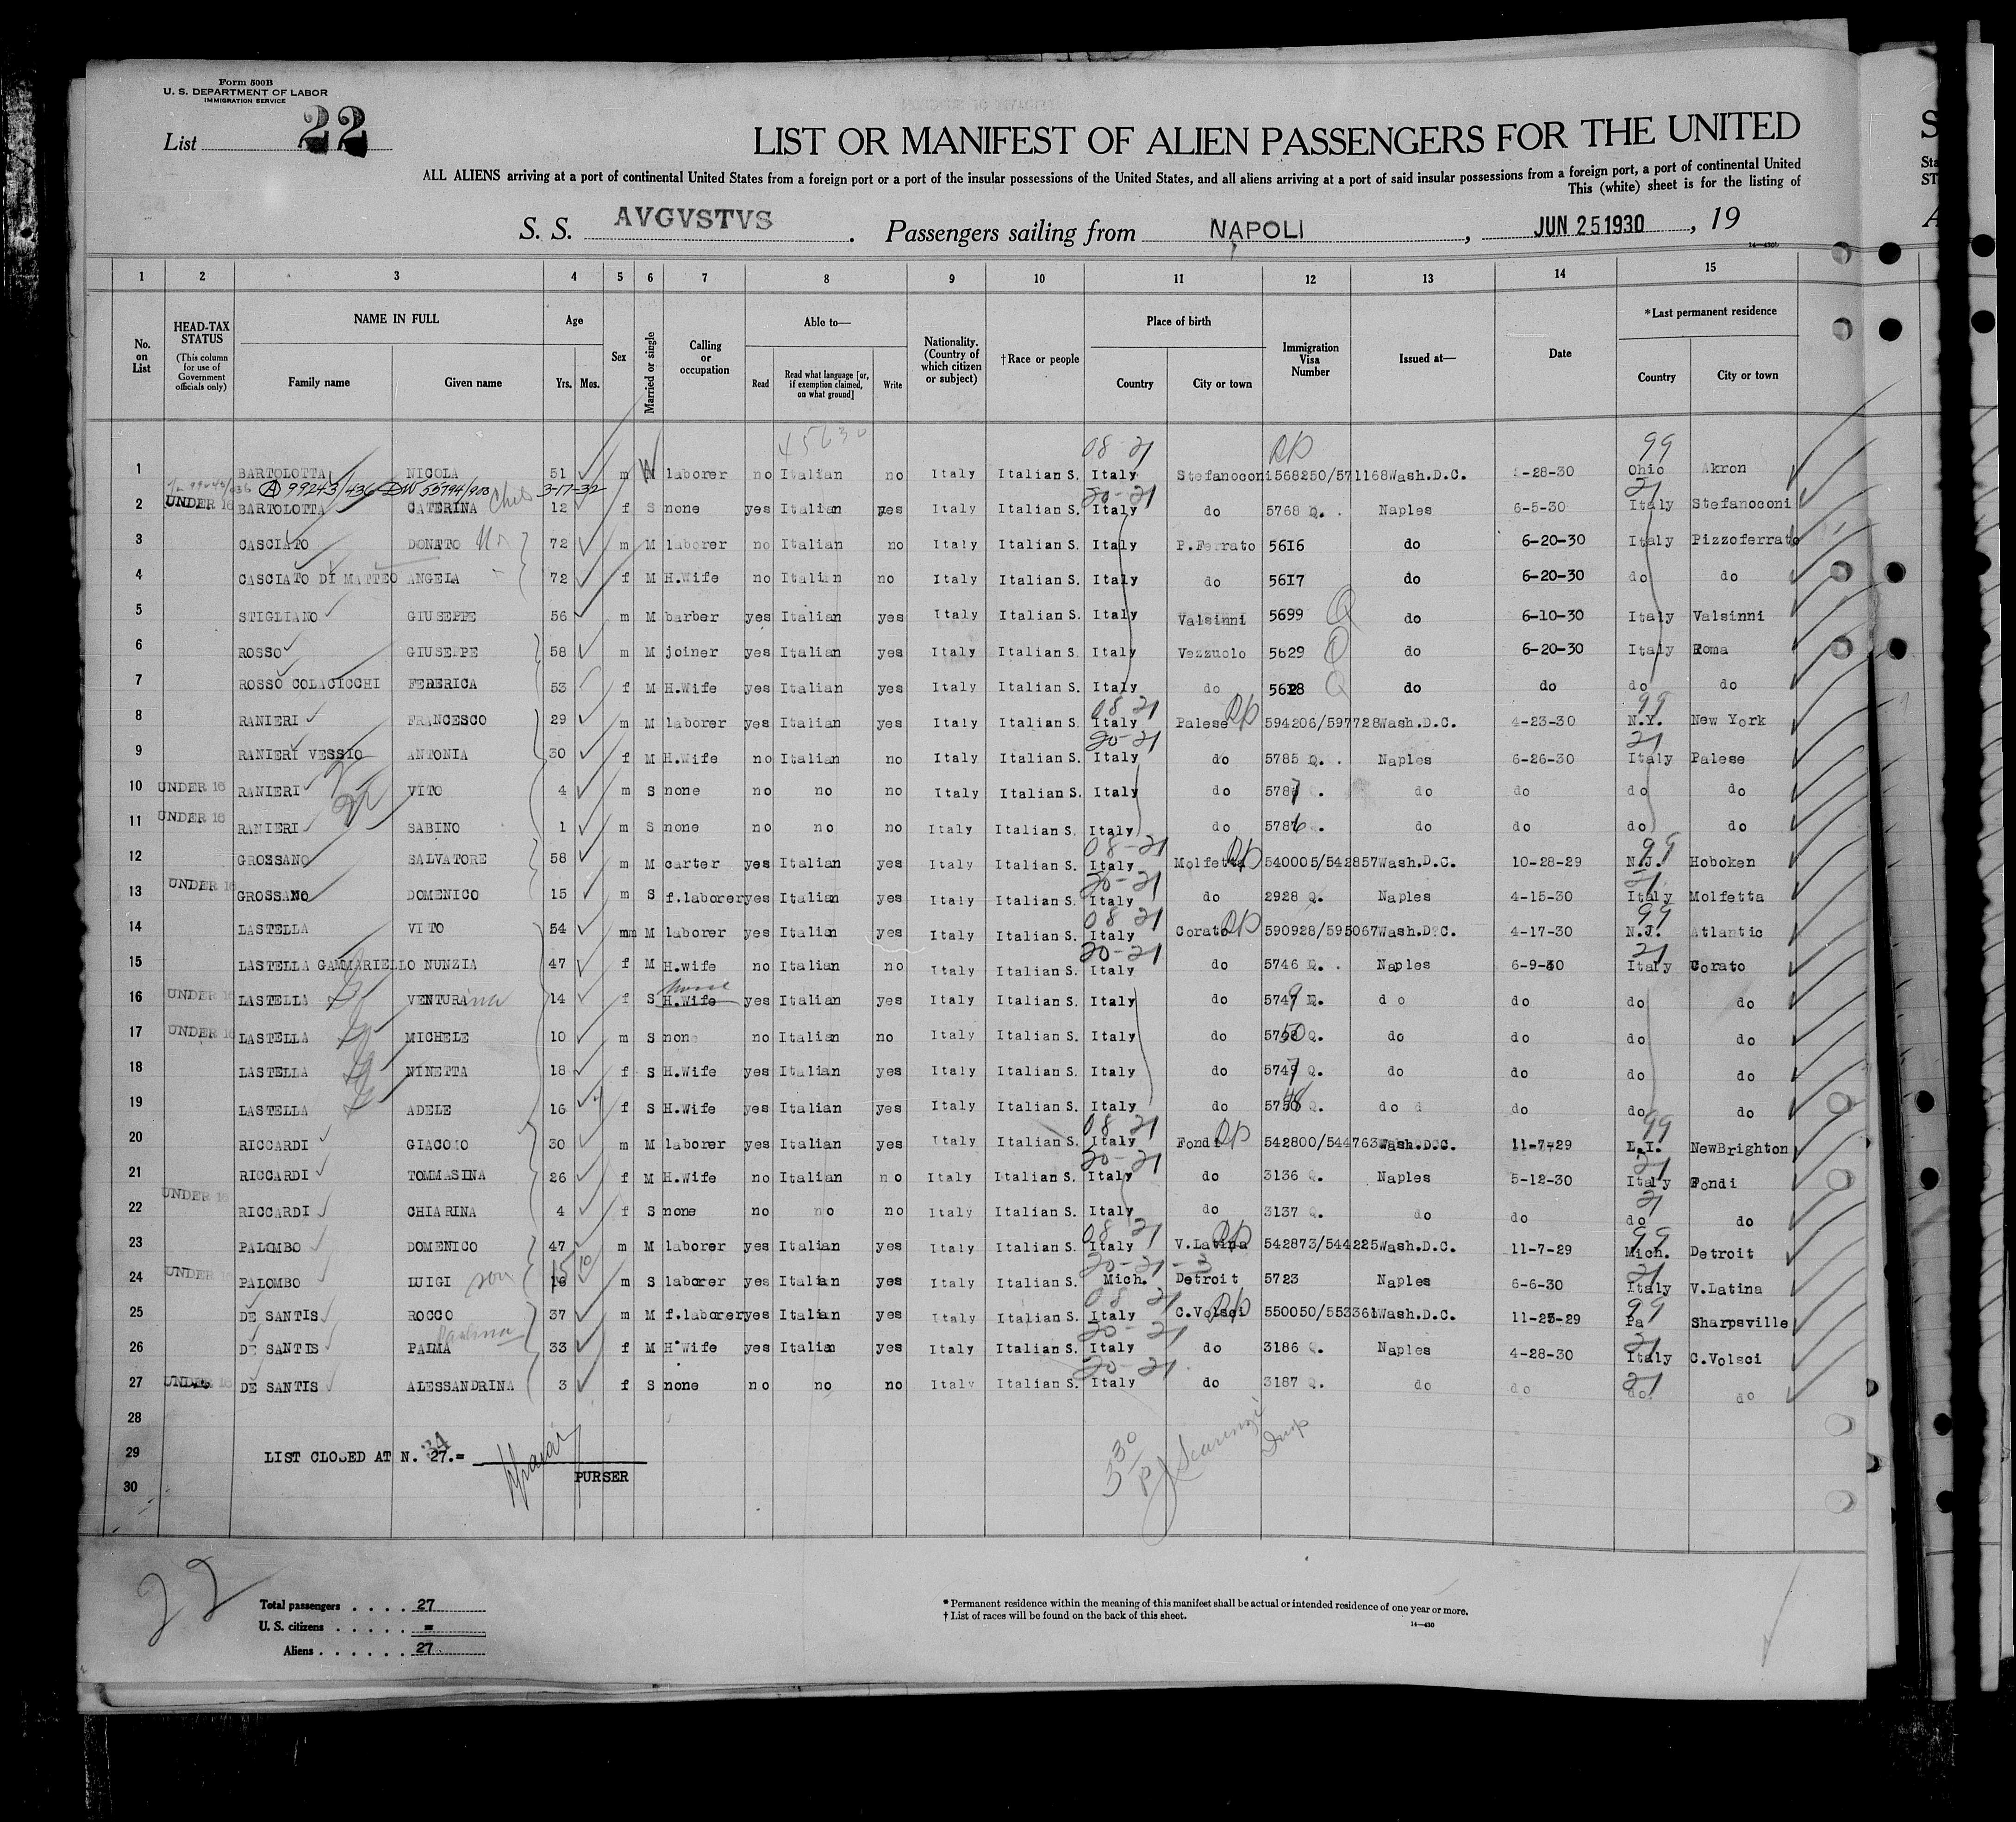 Form 500B
U. S. DEPARTMENT OF LABOR
IMMIGRATION SERVICE
List 22
LIST OR MANIFEST OF ALIEN PASSENGERS FOR THE UNITED
ALL ALIENS arriving at a port of continental United States from a foreign port or a port of the insular possessions of the United States, and all aliens arriving at a port of said insular possessions from a foreign port, a port of continental United
This (white) sheet is for the listing of
S. S. AVGVSTVS . Passengers sailing from NAPOLI , JUN 25 1930 , 19
14—430
1 2 3 4 5 6 7 8 9 10 11 12 13 14 15
No. on List
HEAD-TAX STATUS (This column for use of Government officials only)
NAME IN FULL Family name Given name
Age Yrs. Mos.
Sex
Married or single
Calling or occupation
Able to— Read Read what language [or, if exemption claimed, on what ground] Write
Nationality. (Country of which citizen or subject)
†Race or people
Place of birth Country City or town
Immigration Visa Number
Issued at—
Date
*Last permanent residence Country City or town
45630 08-21 99
1 BARTOLOTTA NICOLA 51 m M laborer no Italian no Italy Italian S. Italy Stefanoconi 568250/571168 Wash.D.C. -28-30 Ohio Akron
99243/436 DW 55794/903 3-17-32 20-21 21
2 UNDER 16 BARTOLOTTA CATERINA 12 f S none yes Italian yes Italy Italian S. Italy do 5768 Q. Naples 6-5-30 Italy Stefanoconi
3 CASCIATO DONATO 72 m M laborer no Italian no Italy Italian S. Italy P.Ferrato 5616 do 6-20-30 Italy Pizzoferrato
4 CASCIATO DI MATTEO ANGELA 72 f M H.Wife no Italian no Italy Italian S. Italy do 5617 do 6-20-30 do do
5 STIGLIANO GIUSEPPE 56 m M barber yes Italian yes Italy Italian S. Italy Valsinni 5699 Q do 6-10-30 Italy Valsinni
6 ROSSO GIUSEPPE 58 m M joiner yes Italian yes Italy Italian S. Italy Vezzuolo 5629 Q do 6-20-30 Italy Roma
7 ROSSO COLACICCHI FEDERICA 53 f M H.Wife yes Italian yes Italy Italian S. Italy do 5628 Q do do do do
08 21 99
8 RANIERI FRANCESCO 29 m M laborer yes Italian yes Italy Italian S. Italy Palese 594206/597728 Wash.D.C. 4-23-30 N.Y. New York
20-21 21
9 RANIERI VESSIO ANTONIA 30 f M H.Wife no Italian no Italy Italian S. Italy do 5785 Q. Naples 6-26-30 Italy Palese
10 UNDER 16 RANIERI VITO 4 m S none no no no Italy Italian S. Italy do 5787 do do do do
11 UNDER 16 RANIERI SABINO 1 m S none no no no Italy Italian S. Italy do 5786 Q. do do do do
08-21 99
12 GROSSANO SALVATORE 58 m M carter yes Italian yes Italy Italian S. Italy Molfetta 540005/542857 Wash.D.C. 10-28-29 N.J. Hoboken
20-21 21
13 UNDER 16 GROSSANO DOMENICO 15 m S f.laborer yes Italian yes Italy Italian S. Italy do 2928 Q. Naples 4-15-30 Italy Molfetta
08 21 99
14 LASTELLA VITO 54 m M laborer yes Italian yes Italy Italian S. Italy Corato 590928/595067 Wash.D.C. 4-17-30 N.J. Atlantic
20-21 21
15 LASTELLA GAMMARIELLO NUNZIA 47 f M H.wife no Italian no Italy Italian S. Italy do 5746 Q. Naples 6-9-30 Italy Corato
16 UNDER 16 LASTELLA VENTURAina 14 f S H.Wife yes Italian yes Italy Italian S. Italy do 5749 Q. do do do do
17 UNDER 16 LASTELLA MICHELE 10 m S none no Italian no Italy Italian S. Italy do 5750 Q. do do do do
18 LASTELLA NINETTA 18 f S H.Wife yes Italian yes Italy Italian S. Italy do 5747 Q. do do do do
19 LASTELLA ADELE 16 f S H.Wife yes Italian yes Italy Italian S. Italy do 5748 Q. do do do do
08 21 99
20 RICCARDI GIACOMO 30 m M laborer yes Italian yes Italy Italian S. Italy Fondi 542800/544763 Wash.D.C. 11-7-29 L.I. NewBrighton
20-21 21
21 RICCARDI TOMMASINA 26 f M H.Wife no Italian no Italy Italian S. Italy do 3136 Q. Naples 5-12-30 Italy Fondi
22 UNDER 16 RICCARDI CHIARINA 4 f S none no no no Italy Italian S. Italy do 3137 Q. do do do do
08 21 99
23 PALOMBO DOMENICO 47 m M laborer yes Italian yes Italy Italian S. Italy V.Latina 542873/544225 Wash.D.C. 11-7-29 Mich. Detroit
20-21-3 21
24 UNDER 16 PALOMBO LUIGI son 15 10 m S laborer yes Italian yes Italy Italian S. Mich. Detroit 5723 Naples 6-6-30 Italy V.Latina
08 21 99
25 DE SANTIS ROCCO 37 m M f.laborer yes Italian yes Italy Italian S. Italy C.Volsci 550050/553361 Wash.D.C. 11-25-29 Pa Sharpsville
20-21 21
26 DE SANTIS PALMA 33 f M H.Wife yes Italian yes Italy Italian S. Italy do 3186 Q. Naples 4-28-30 Italy C.Volsci
20-21 21
27 UNDER 16 DE SANTIS ALESSANDRINA 3 f S none no no no Italy Italian S. Italy do 3187 Q. do do do do
28
29 LIST CLOSED AT N. 27.=
PURSER
30
22
Total passengers . . . . 27
U. S. citizens . . . . . =
Aliens . . . . . . 27
* Permanent residence within the meaning of this manifest shall be actual or intended residence of one year or more.
† List of races will be found on the back of this sheet.
14—430